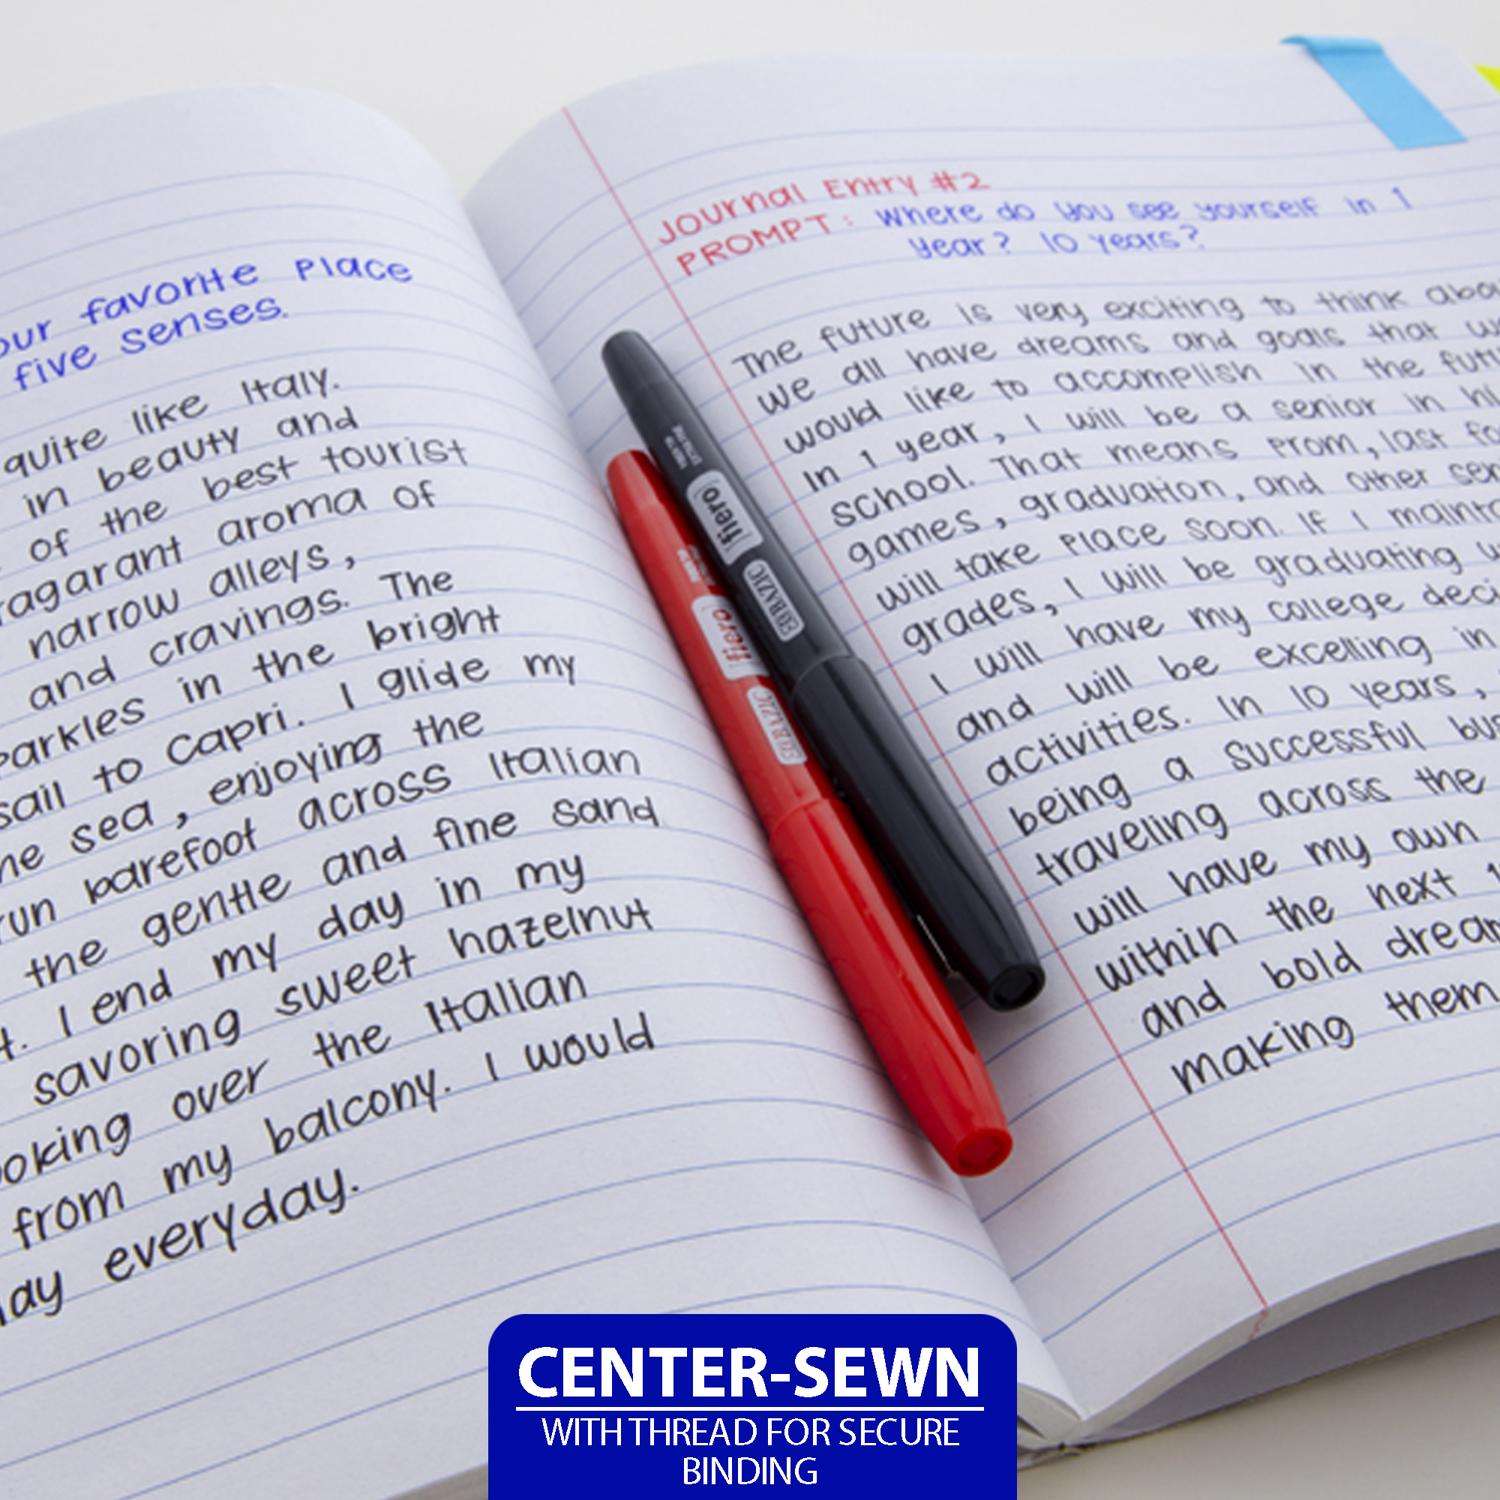 our favorite place
five senses.
quite like Italy.
in beauty and
of the best tourist
ragarant aroma of
narrow alleys,
and cravings. The
parkles in the bright
sail to Capri. I glide my
he sea, enjoying the
run barefoot across Italian
the gentle and fine sand
t. I end my day in my
savoring sweet hazelnut
ooking over the Italian
from my balcony. I would
ay everyday.
Journal Entry #2
PROMPT: Where do you see yourself in 1
year? 10 years?
The future is very exciting to think abou
we all have dreams and goals that w
would like to accomplish in the futu
In 1 year, I will be a senior in hi
school. That means prom, last fo
games, graduation, and other sen
will take place soon. If I mainta
grades, I will be graduating w
I will have my college deci
and will be excelling in
activities. In 10 years,
being a successful bus
traveling across the
will have my own
within the next 1
and bold dream
making them
fiero
BAZIC
fiero
BAZIC
CENTER-SEWN
WITH THREAD FOR SECURE
BINDING